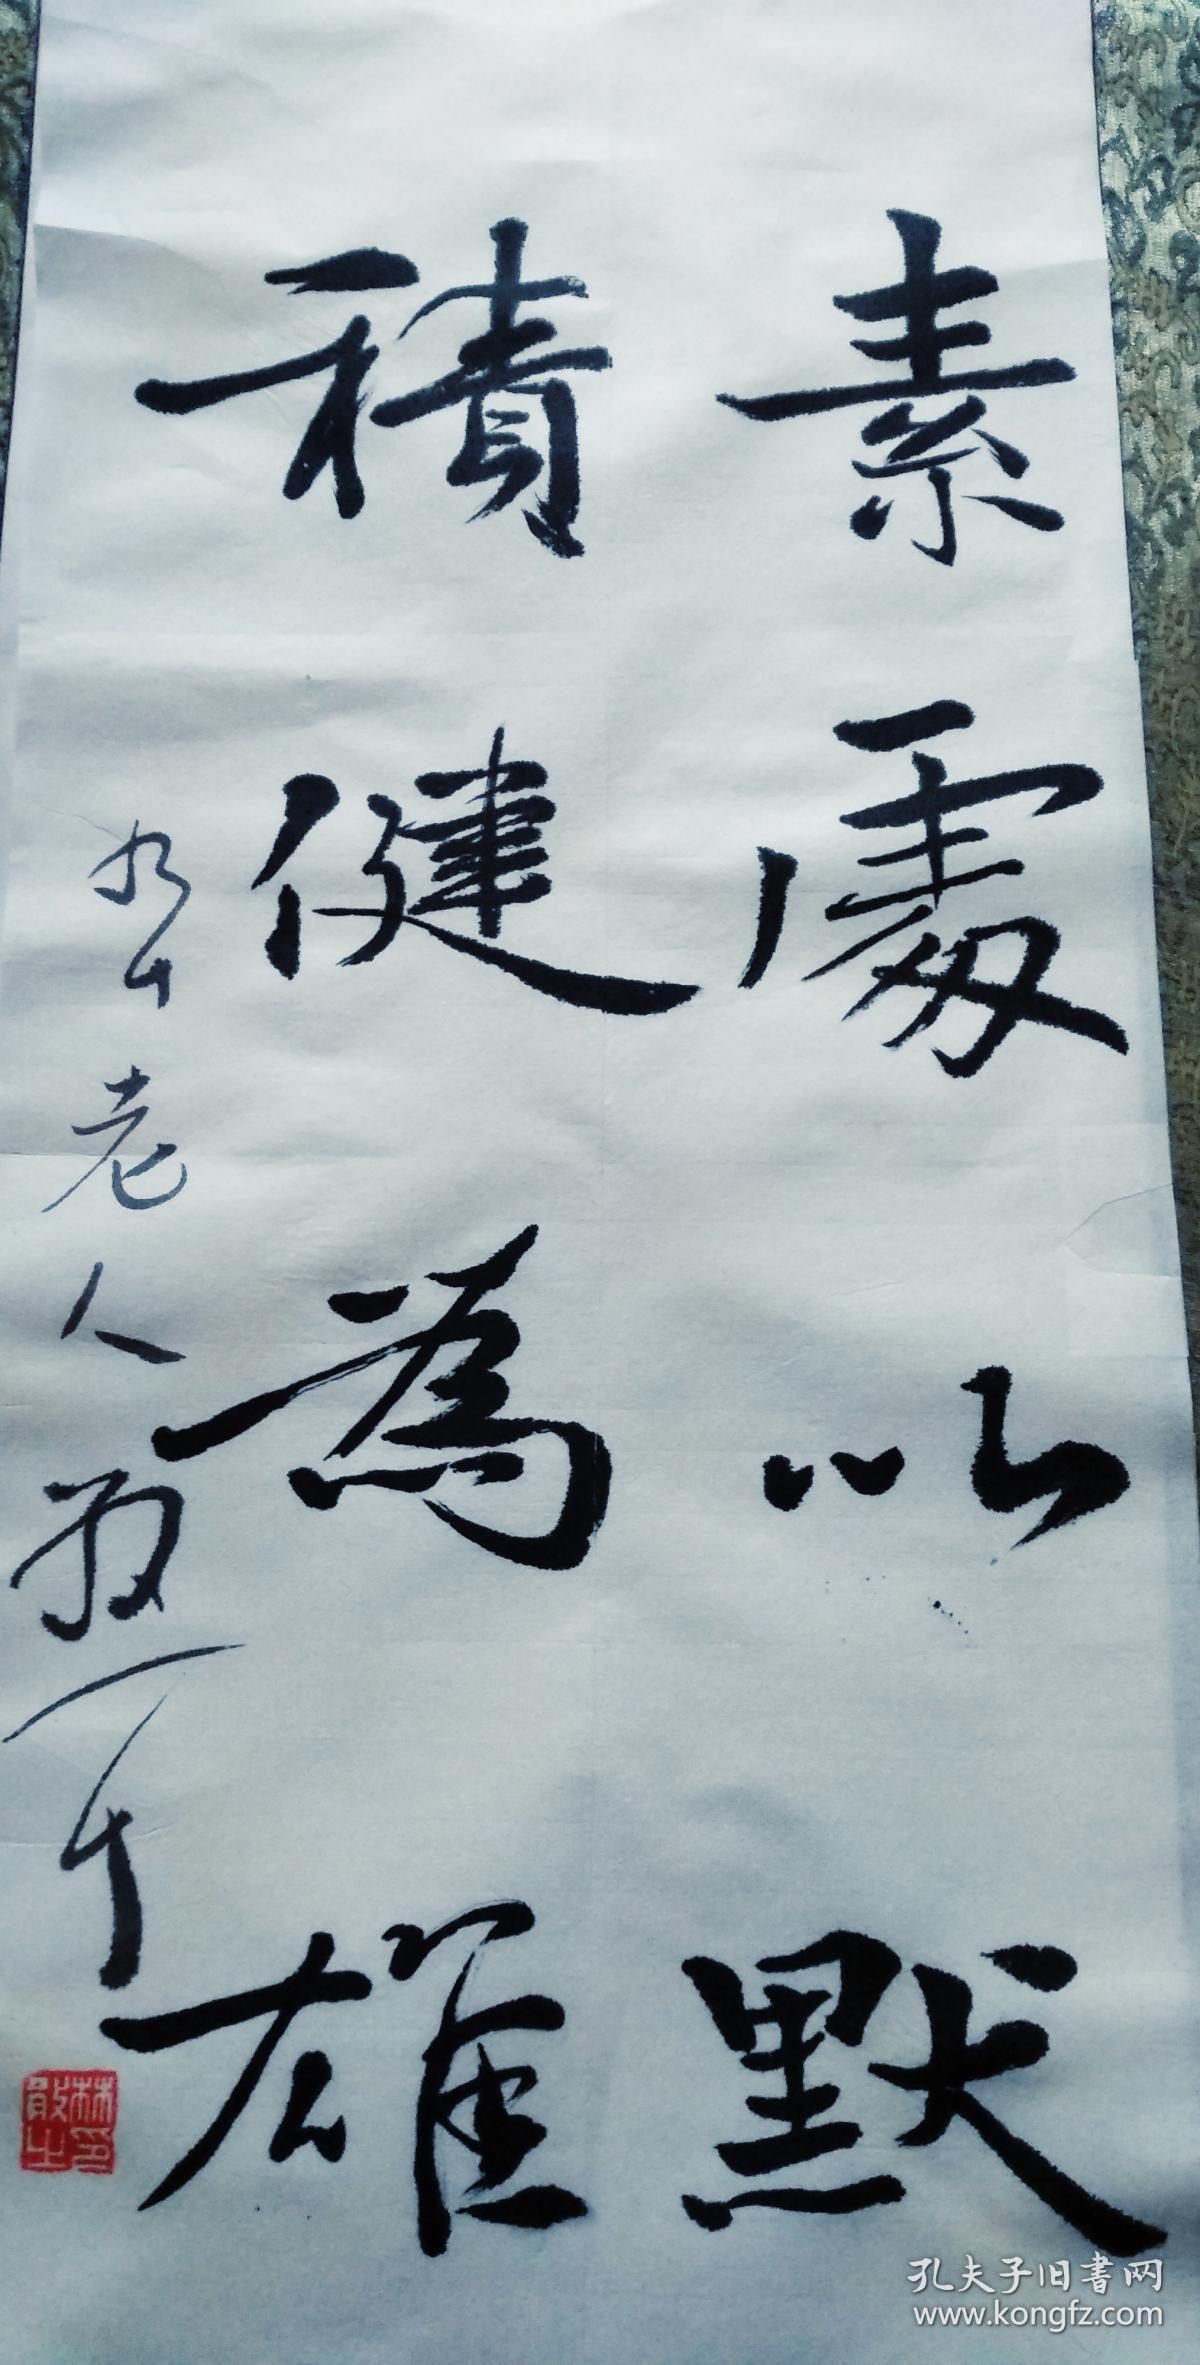 素處以默
積健為雄
九十老人散之
林散之印
孔夫子旧書网
www.kongfz.com